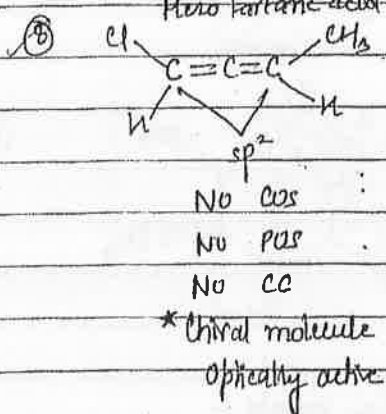 Meso tartaric acid
⑧ Cl CH3
C=C=C
H H
sp²
No COS :
No POS .
No CC
* Chiral molecule
Optically active